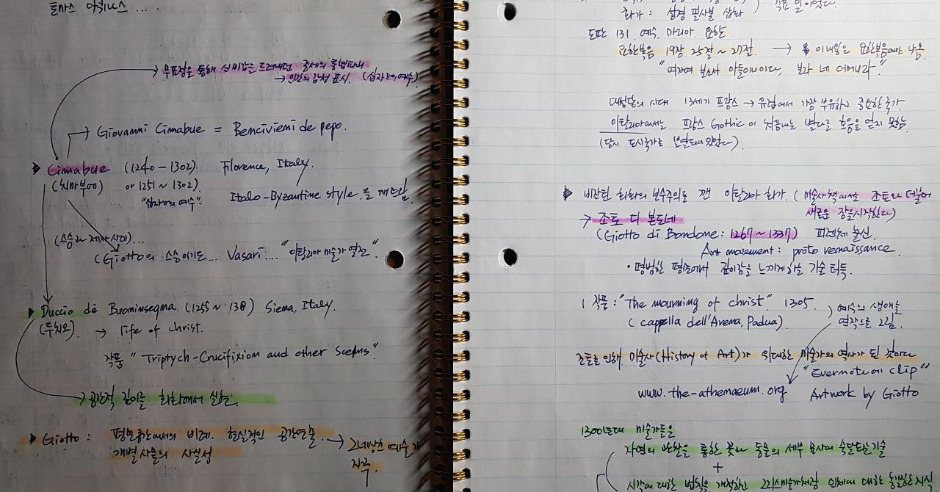 토마스 아퀴나스 ...
무표정을 통해 신비감을 드러내던 중세의 통념파괴
→ 인간의 감정 표시. (십자가의 예수)
→ Giovanni Cimabue = Bencivieni de pepo.
Cimabue (1240 – 1302) Florence, Italy.
(치마부에) or 1251 ~ 1302)
"십자가의 예수" Italo-Byzantine style 을 깨트림
(스승과 제자 사이)...
(Giotto의 스승이기도... Vasari... "이탈리아 미술가 열전"
Duccio di Buoninsegna (1255 ~ 1318) Siena, Italy.
(두치오) → life of Christ.
작품 "Triptych-Crucifixion and other Scenes"
→ 공간적 깊이를 회화에서 실현
Giotto : 평면공간에서의 비례, 헌신적인 공간연출
개별사물의 사실성
→ 고뇌하는 예수
화가 : 성경 필사본 삽화
도판 131 예수, 마리아, 요한
요한복음 19장 25절 ~ 27절 → 이 내용은 요한복음에만 나옴
"여자여 보소서 아들이니이다, 보라 네 어머니라."
대성당의 시대 13세기 프랑스 → 유럽에서 가장 부유하고 중요한 국가
이탈리아에서는 프랑스 Gothic 이 처음에는 별다른 호응을 얻지 못함
(당시 도시국가로 분열되어 있었다).
비잔틴 회화의 보수주의를 깬 이탈리아 화가 (미술사 책에서는 조토와 더불어
새로운 장을 시작한다)
→ 조토 디 본도네
(Giotto di Bondone : 1267 ~ 1337) 피렌체 출신.
Art movement : proto renaissance.
• 평범한 평면에서 깊이감을 느끼게 하는 기술 터득
1 작품 : "The mourning of christ" 1305.
(cappella dell'Arena, Padua).
예수의 생애를
연작으로 그림.
조토로 인해 미술사(History of Art)가 위대한 미술가의 역사가 된 것이다
"Evernote에 clip"
www.the-athenaeum.org Artwork by Giotto
1300년대 미술가들은
자연의 관찰을 통한 꽃과 동물의 세부 묘사에 숙달된 기술
+
시각에 대한 법칙을 개척한 그리스미술가처럼 인체에 대한 능통한 지식